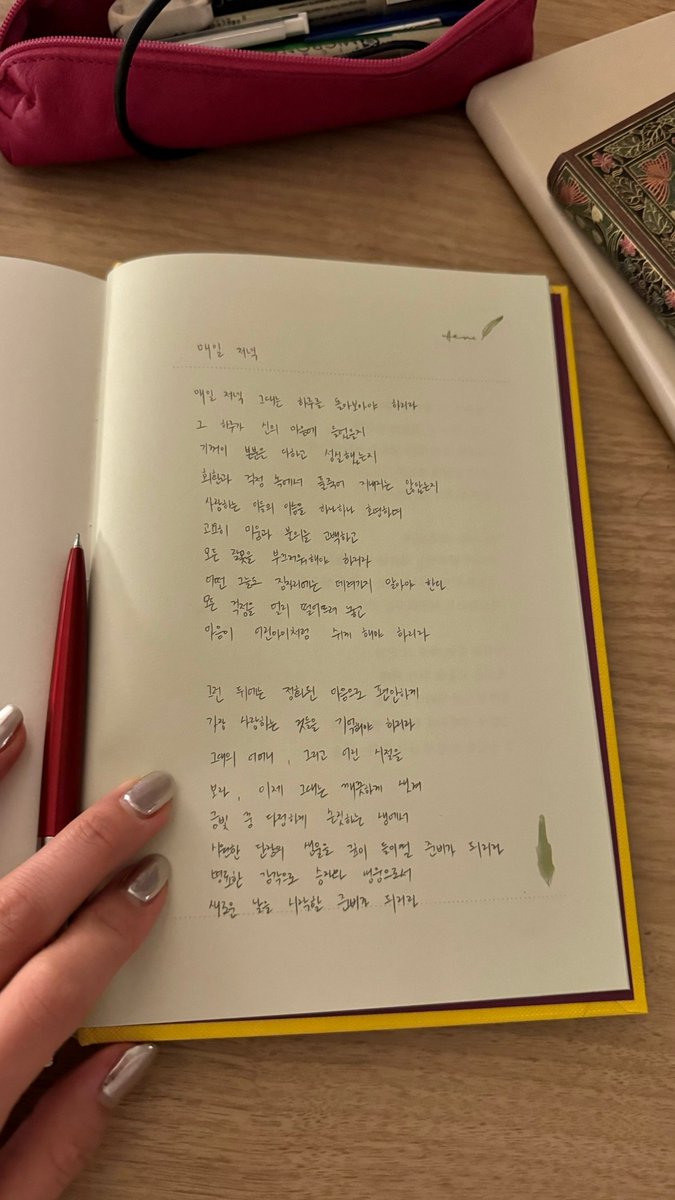 매일 저녁
매일 저녁 그대는 하루를 돌아보아야 하리라
그 하루가 신의 마음에 들었을지
기꺼이 본분을 다하고 성실했는지
회한과 걱정 속에서 풀죽어 지내지는 않았는지
사랑하는 이들의 이름을 하나하나 호명하며
고요히 미움과 불의를 고백하고
모든 잘못을 부끄러워해야 하리라
어떤 그늘도 잠자리에는 데려가지 말아야 한다
모든 걱정을 멀리 떨어뜨려 놓고
마음이 어린아이처럼 쉬게 해야 하리라
그런 뒤에는 정화된 마음으로 편안하게
가장 사랑하는 것들을 기억해야 하리라
그대의 어머니, 그리고 어린 시절을
보라, 이제 그대는 깨끗하게 되어
금빛 꿈 다정하게 손짓하는 샘에서
시원한 단잠의 샘물을 깊이 들이켤 준비가 되리라
명료한 감각으로 승자와 영웅으로서
새로운 날을 시작할 준비가 되리라